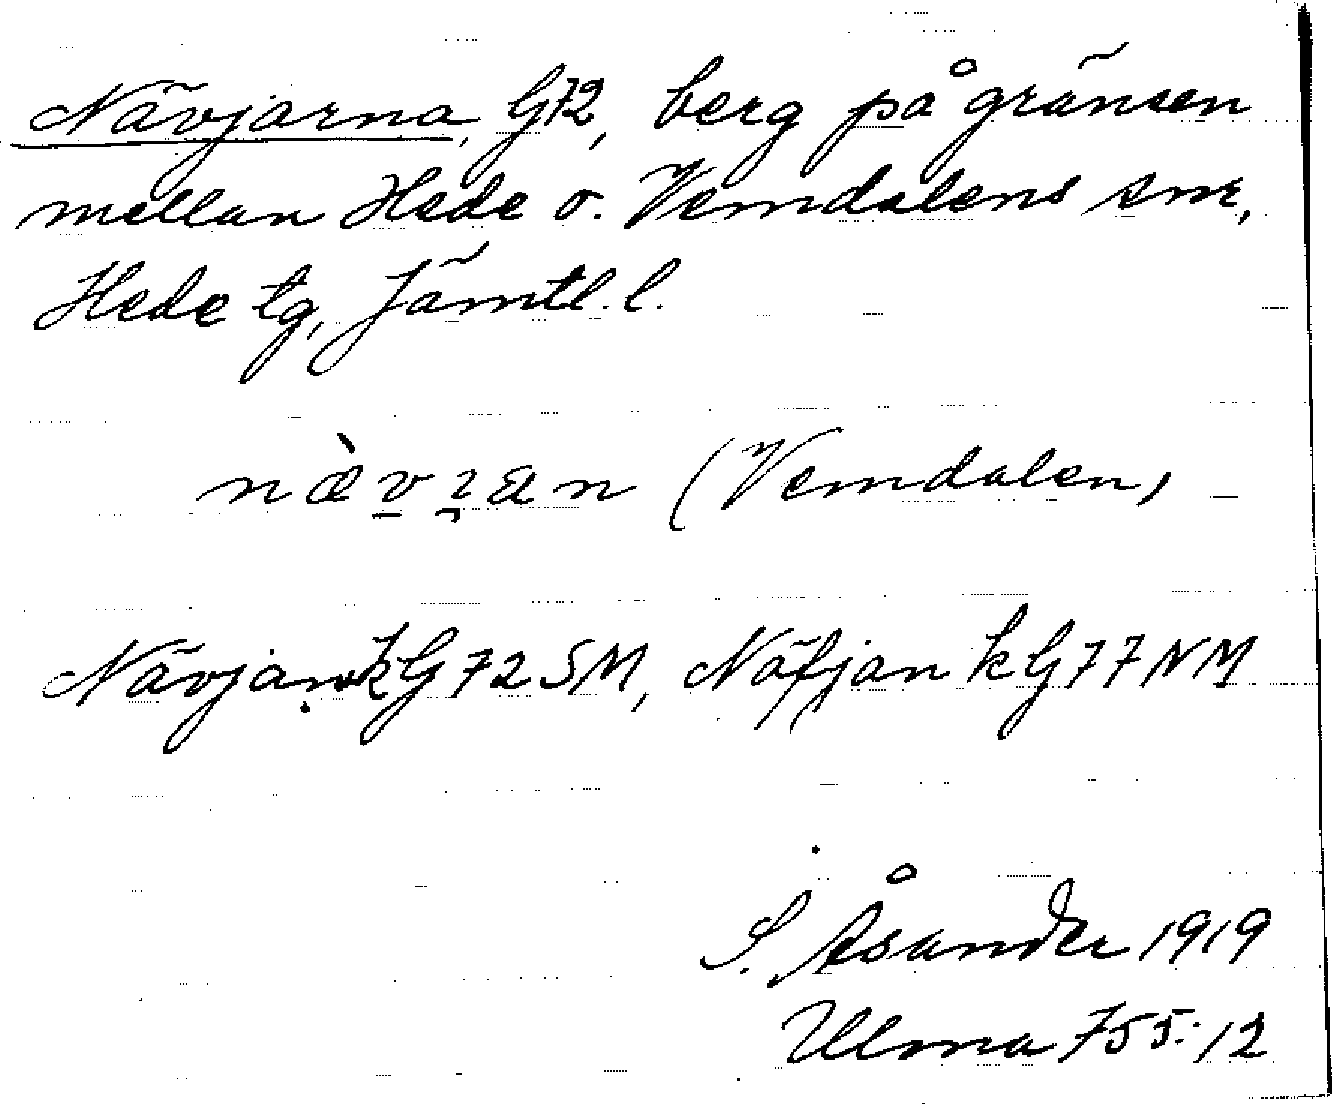 Nävjarna, G72, berg på gränsen
mellan Hede o. Vemdalens snr,
Hede tg, Jämtl. l.
næ̀vȷan (Vemdalen)
Nävjan kG 72 SM, Näfjan k G77 NM
S. Åsander 1919
Ulma 755:12